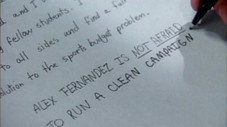 al and I
fellow students. I
to all sides and find a fair
solution to the sports budget problem.
ALEX FERNANDEZ IS NOT AFRAID
TO RUN A CLEAN CAMPAIGN